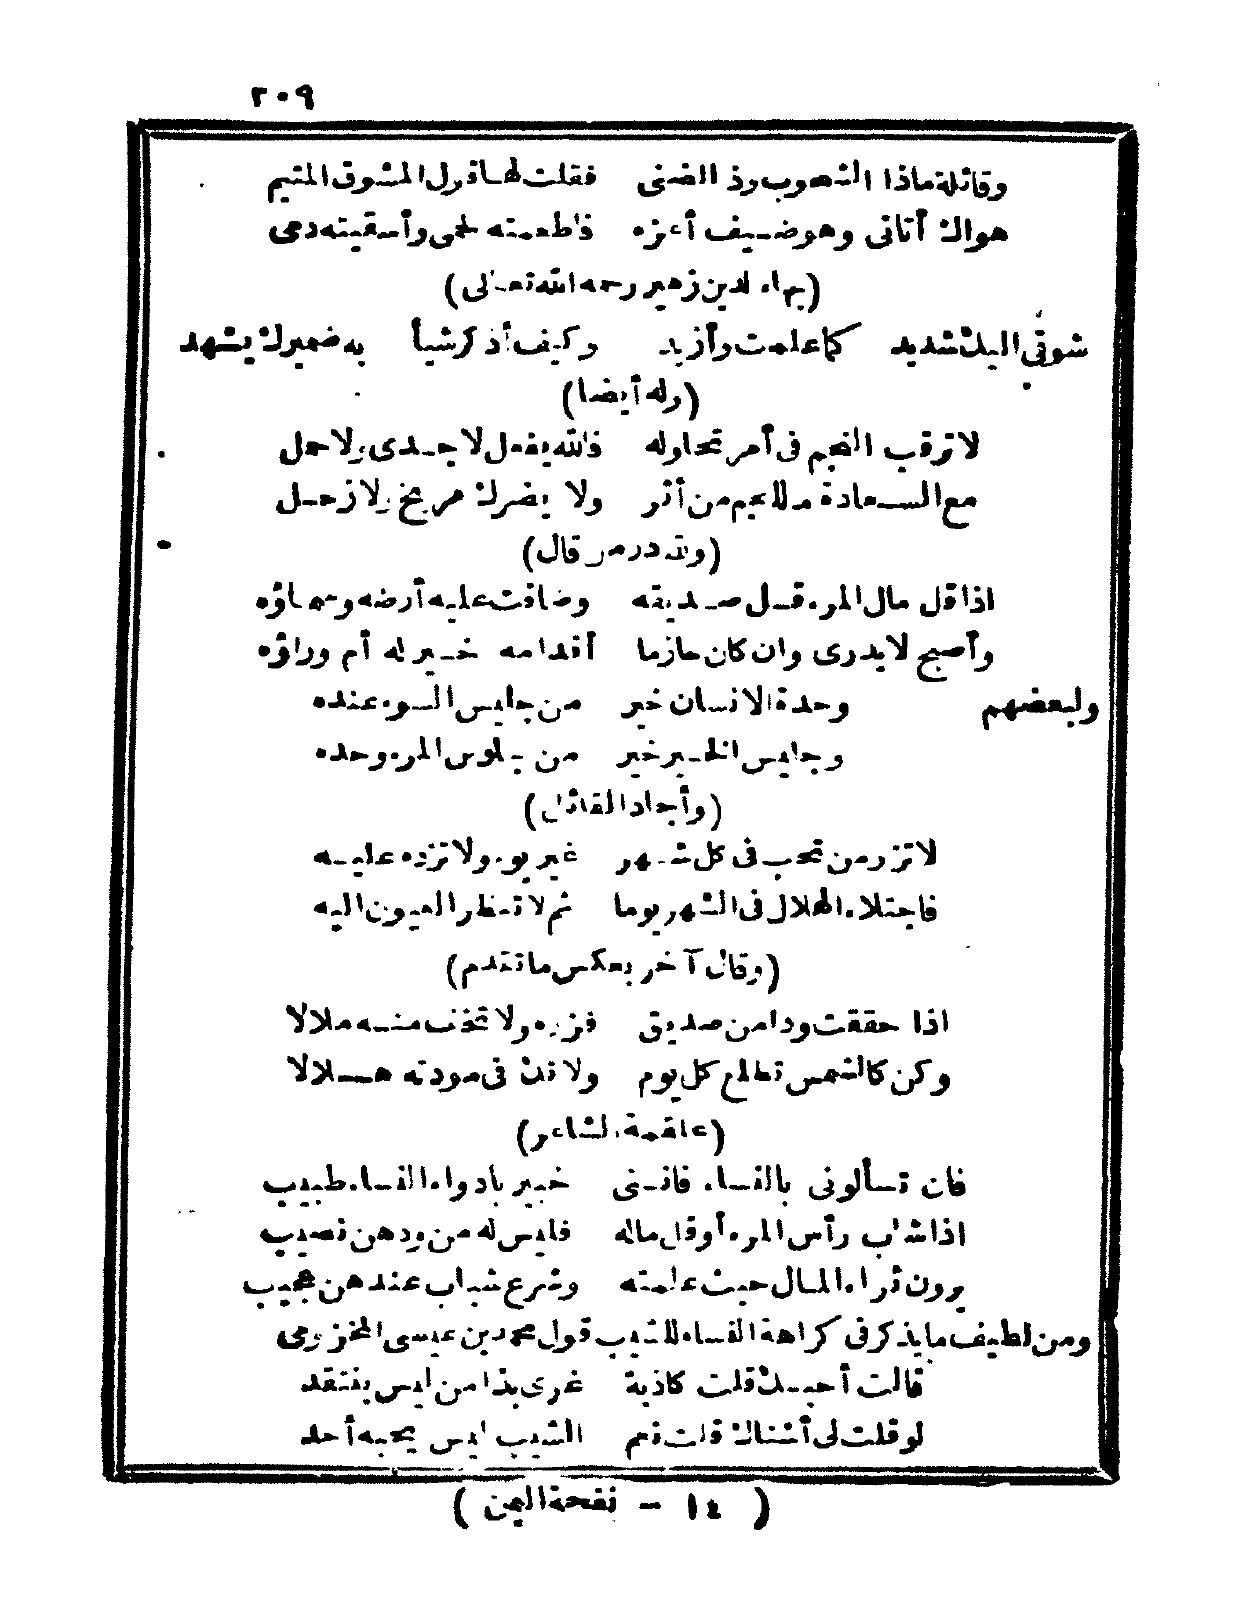 ٢٠٩
وقائلة ماذا الشحوب وذ الضنى فقلت لها قول المشوق المتيم
هواك أتانى وهو ضيف أعزه فأطعمته لحمى وأسقيته دمى
(بهاء الدين زهير رحمه الله تعالى)
شوقى اليك شديد كما علمت وأزيد وكيف أذكر شيأ به ضميرك يشهد
(وله أيضا)
لا ترقب النجم فى أمر تحاوله فالله يفعل لا جدى ولا حمل
مع السعادة ما للنجم من أثر ولا يضرك مريخ ولا زحل
(ولله در من قال)
اذا قل مال المرء قل صديقه وضاقت عليه أرضه وسماؤه
وأصبح لا يدرى وان كان حازما أقدامه خير له أم وراؤه
ولبعضهم وحدة الانسان خير من جليس السوء عنده
وجليس الخير خير من جلوس المرء وحده
(وأجاد القائل)
لا تزر من تحب فى كل شهر غير يوم ولا تزده عليه
فاجتلاء الهلال فى الشهر يوما ثم لا تنظر العيون اليه
(وقال آخر بعكس ما تقدم)
اذا حققت ودا من صديق فزره ولا تخف منه ملالا
وكن كالشمس تطلع كل يوم ولا تك فى مودته هلالا
(علقمة الشاعر)
فان تسألونى بالنساء فاننى خبير بادواء النساء طبيب
اذا شاب رأس المرء أو قل ماله فليس له من ودهن نصيب
يرون ثراء المال حيث علمته وشرع شباب عندهن عجيب
ومن لطيف ما يذكر فى كراهة النساء للشيب قول محمد بن عيسى المخزومى
قالت أحبك قلت كاذبة غرى بذا من ليس ينتقد
لو قلت لى أشناك قلت نعم الشيب ليس يحبه أحد
( ١٤ - نفحة اليمن )